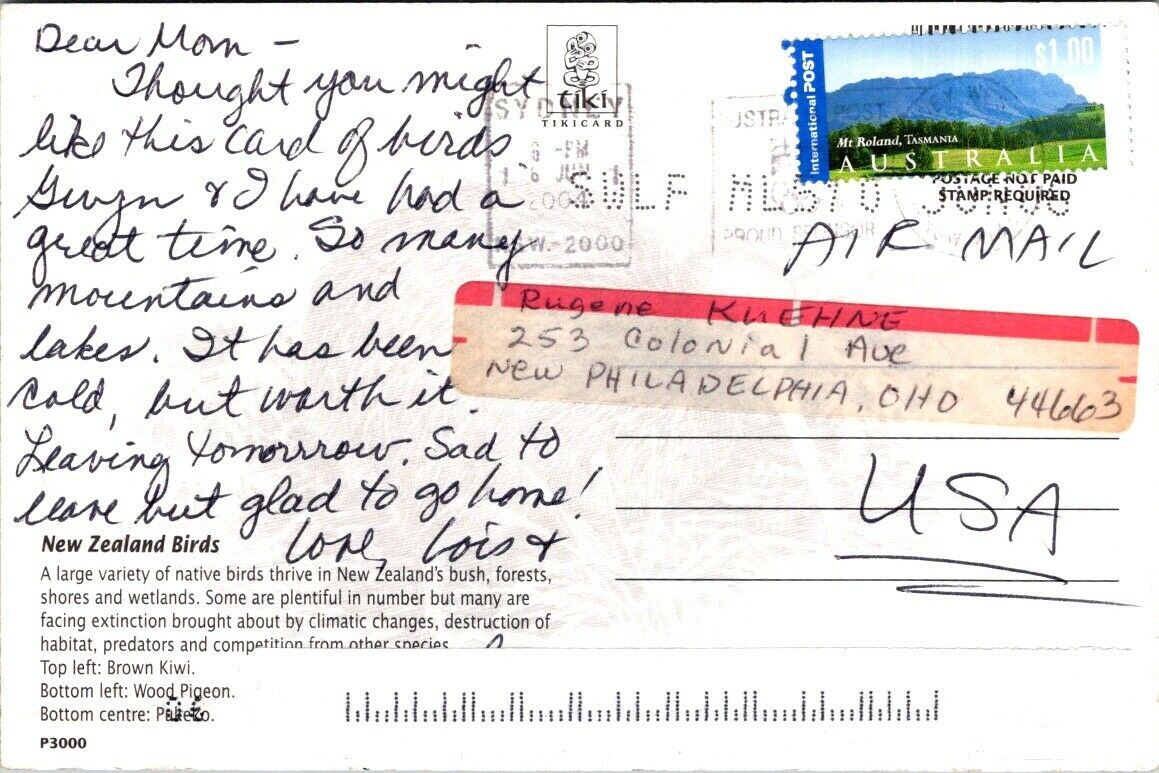 Dear Mom –
Thought you might
like this card of birds
Gwyn & I have had a
great time. So many
mountains and
lakes. It has been
cold, but worth it.
Leaving tomorrrow. Sad to
leave but glad to go home!
Love, Lois &
New Zealand Birds
A large variety of native birds thrive in New Zealand's bush, forests,
shores and wetlands. Some are plentiful in number but many are
facing extinction brought about by climatic changes, destruction of
habitat, predators and competition from other species
Top left: Brown Kiwi.
Bottom left: Wood Pigeon.
Bottom centre: Pukeko.
P3000
tiki
TIKICARD
SYDNEY
PM
2004
NSW-2000
International POST
$1.00
Mt Roland, TASMANIA
AUSTRALIA
POSTAGE NOT PAID
STAMP REQUIRED
AIR MAIL
Rugene KUEHNE
253 Colonial Ave
New PHILADELPHIA, OHO 44663
USA